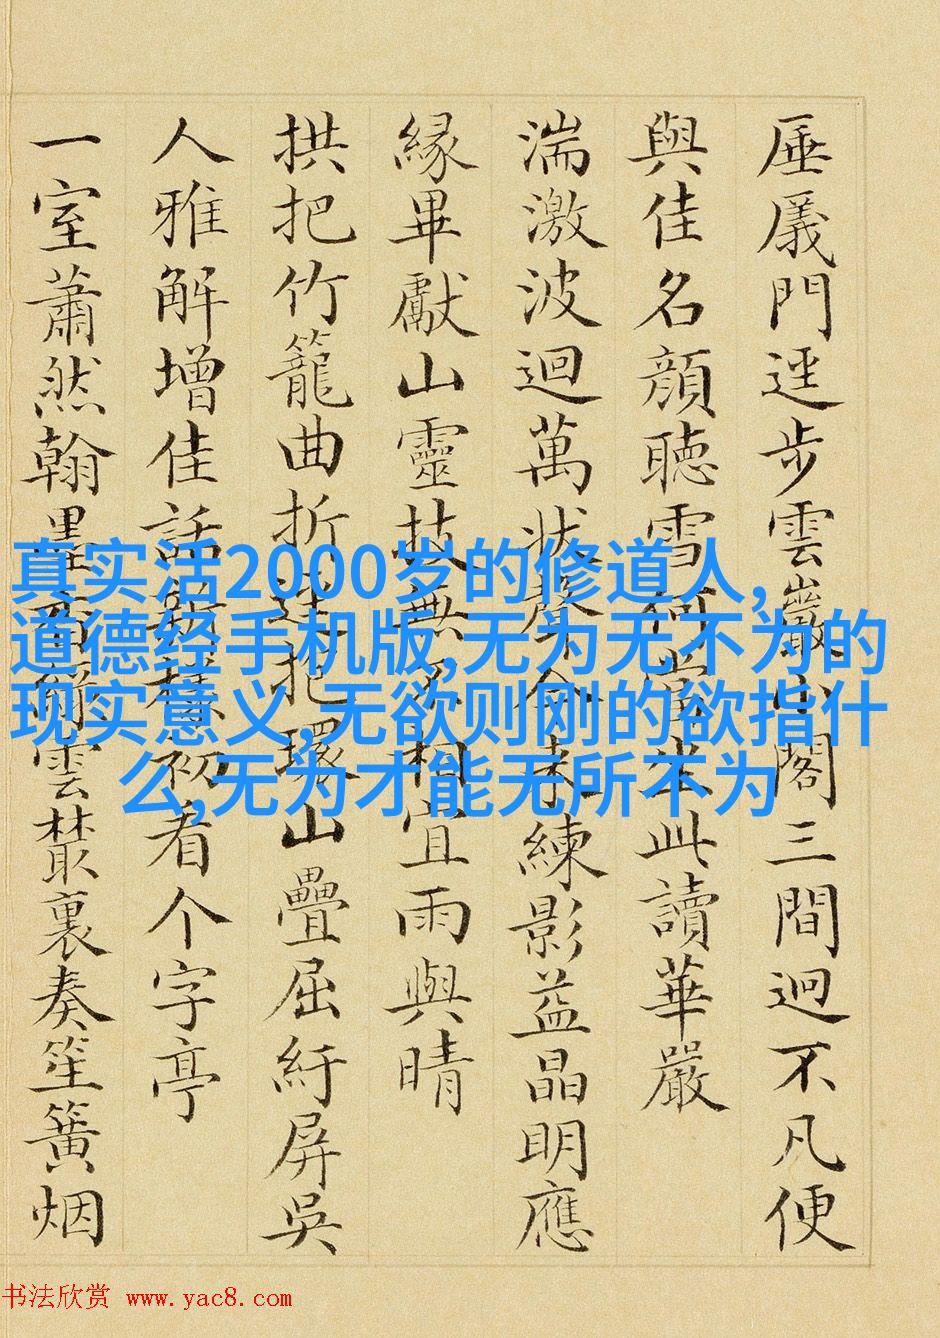 厜㕒門逕步雲巖小閣三間迥不凡便
與佳名顏聽雪何當坐此讀華嚴
湍激波迴萬狀聲今來練影益晶明應
緣畢獻山靈技無不相宜雨與晴
拱把竹籠曲折逕把環山疊屈紆屏吳
人雅解增佳話新初看个字亭
一室蕭然翰墨香雲叢裏奏笙簧烟
真实活2000岁的修道人,
道德经手机版,无为无不为的
现实意义,无欲则刚的欲指什
么,无为才能无所不为
书法欣赏 www.yac8.com